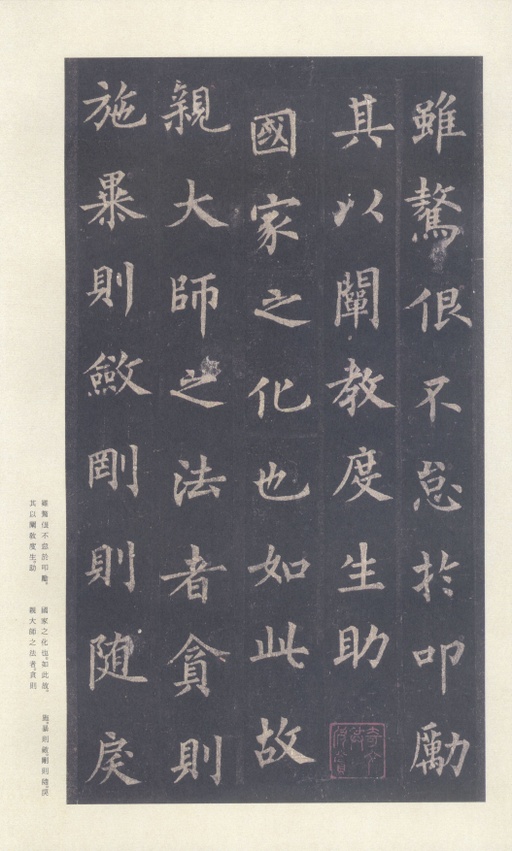 雖驁佷不怠於叩勵
其以闡教度生助
國家之化也如此故
親大師之法者貪則
施暴則斂剛則隨戾
雖驁佷不怠於叩勵、
其以闡敎度生、助
國家之化也、如此故、
親大師之法者、貪則
施、暴則斂、剛則隨、戾